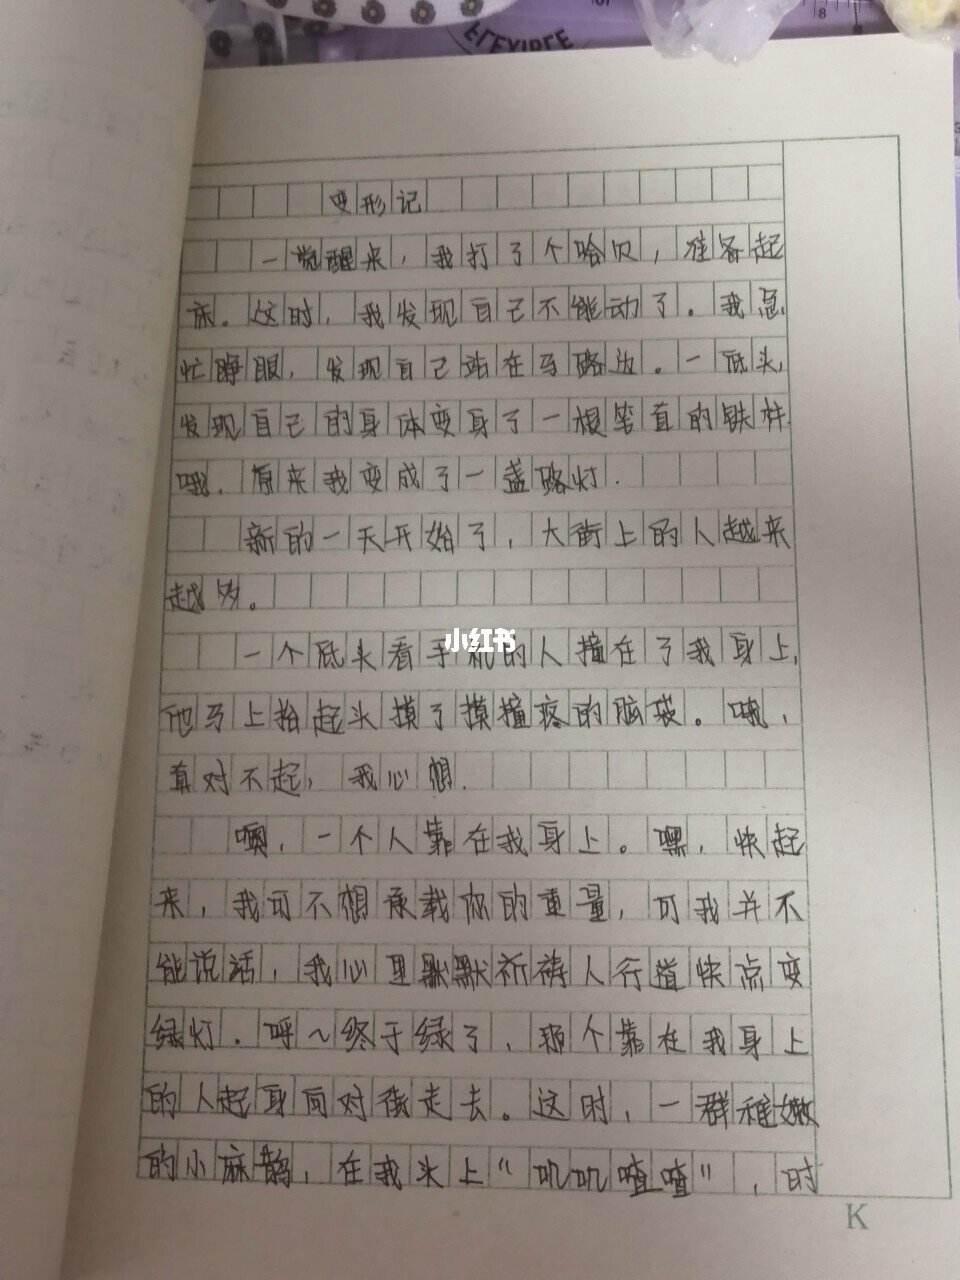 变形记
一觉醒来，我打了个哈欠，准备起
床。这时，我发现自己不能动了。我急
忙睁眼，发现自己站在马路边。一底头，
发现自己的身体变身了一根笔直的铁柱
哦，原来我变成了一盏路灯.
新的一天开始了，大街上的人越来
越多。
一个底头看手机的人撞在了我身上，
他马上抬起头摸了摸撞疼的脑袋。哦，
真对不起，我心想.
噢，一个人靠在我身上。嘿，快起
来，我可不想承载你的重量，可我并不
能说话，我心里默默祈祷人行道快点变
绿灯.呼~终于绿了，那个靠在我身上
的人起身向对街走去。这时，一群稚嫩
的小麻鹊，在我头上“叽叽喳喳”，时
K
小红书